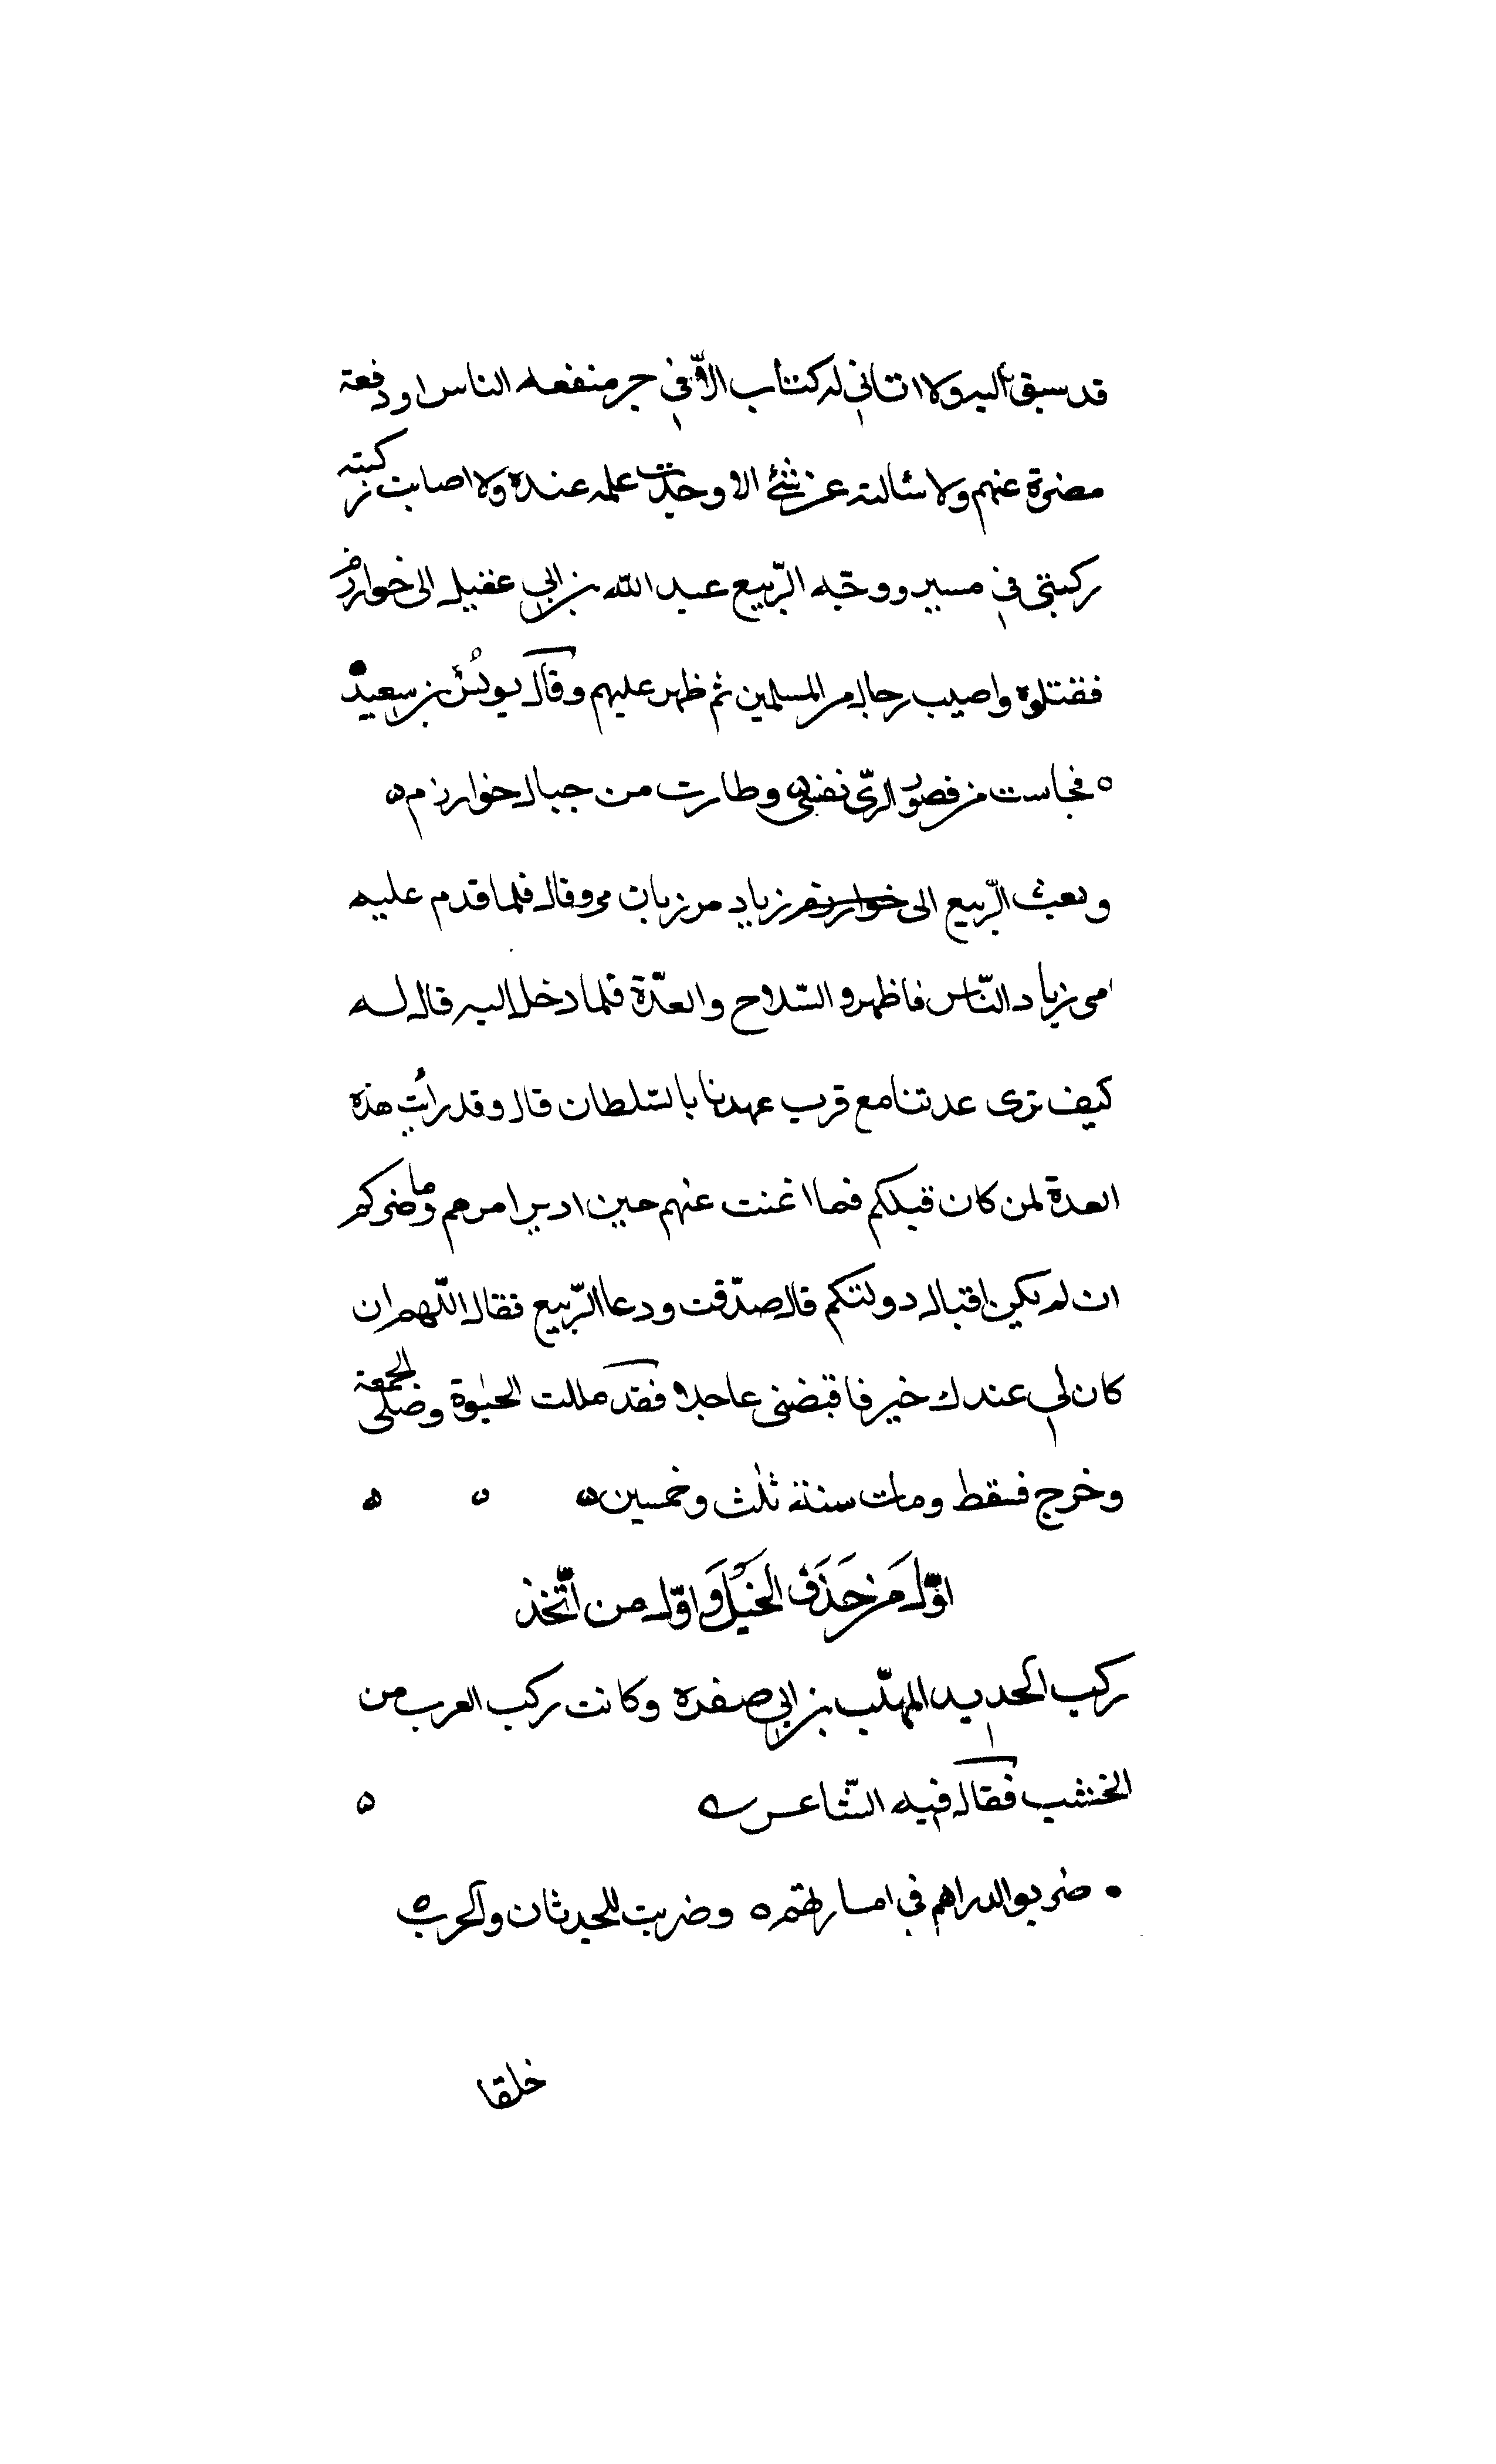 قد سبق اليه ولا اتاني له كتاب الا في جر منفعه الناس او دفعة
مضرة عنهم ولا سئالته عن شئ الا وجدت علمه عنده ولا اصابت ركبته
ركبتى في مسير ووجّه الرّبيع عبد الله بن ابي عقيل الى خوارزم
فقتلوه واصيب رجال من المسلمين ثم ظهر عليهم وقال يونس بن سعيد
ه فجاست من قصور الرىّ نفسى وطارت من جبال خوارزم ه
وبعث الرّبيع الى زياد مرزبان مرو قال فلما قدم عليه
امر زياد النّاس فاظهروا السّلاح والعدّة فلما دخل اليه قال له
كيف ترى عدتنا مع قرب عهدنا بالسّلطان قال وقد رأيت هذه
العدة لمن كان قبلكم فما اغنت عنهم حين ادبر امرهم وما ضركم
ان لم يكن اقبال دولتكم قال صدّقت ودعا الرّبيع فقال اللّهم ان
كان لي عندك خير فاقبضنى عاجلا فقد مللت الحيٰوة وصلى الجمعة
وخرج فسقط ومات سنة ثلٰث وخمسين ه ه ه
اوّل مَن حَذَف الخَيْل وَاوّل من اتّخذ
ركب الحديد المهلّب بن ابي صفره وكانت ركب العرب من
الخشب فقال فيه الشّاعر ه ه
ضربوا الدراهم في امارتهم ه وضربت للحدثان والحرب ه
خلقا